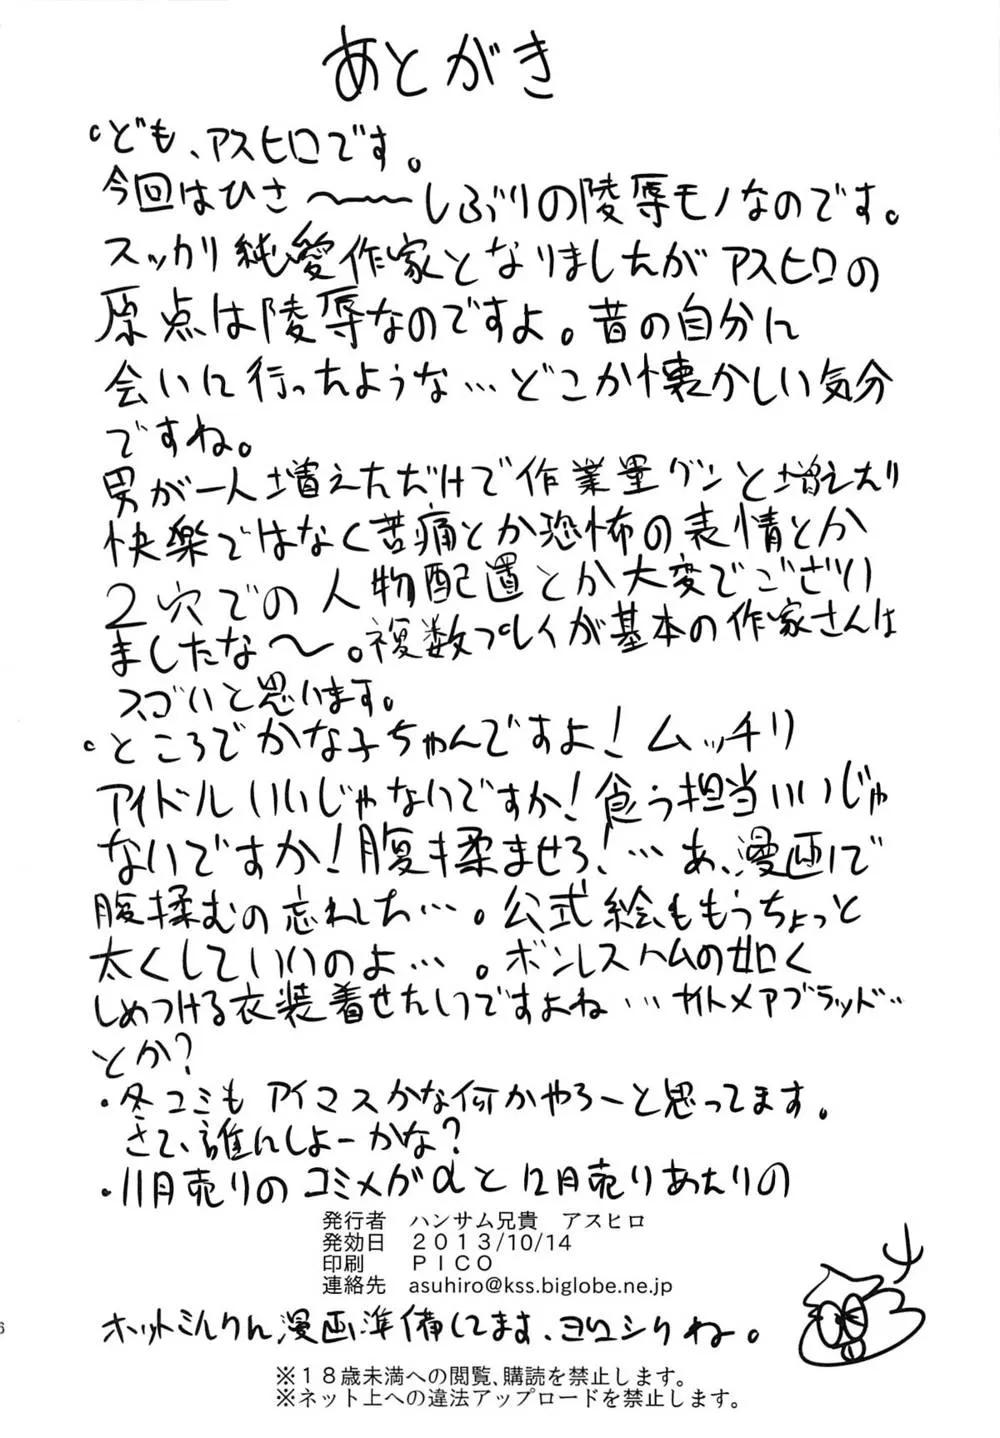 あとがき
ども、アスヒロです。
今回はひさ〜〜〜しぶりの陵辱モノなのです。
スッカリ純愛作家となりましたがアスヒロの
原点は陵辱なのですよ。昔の自分に
会いに行ったような…どこか懐かしい気分
ですね。
男が一人増えただけで作業量グンと増えたり
快楽ではなく苦痛とか恐怖の表情とか
2穴での人物配置とか大変でござい
ましたな〜。複数プレイが基本の作家さんは
スゴいと思います。
ところでかな子ちゃんですよ!ムッチリ
アイドルいいじゃないですか!食う担当いいじゃ
ないですか!腹揉ませろ!…あ、漫画で
腹揉むの忘れした…。公式絵ももうちょっと
太くしていいのよ…。ボンレスハムの如く
しめつける衣装着せたいですよね…ナイトメアブラッド…
とか?
・冬コミもアイマスかな何かやろーと思ってます。
さて、誰にしよーかな?
・11月売りのコミメガαと12月売りあたりの
発行者 ハンサム兄貴 アスヒロ
発効日 2013/10/14
印刷 PICO
連絡先 asuhiro@kss.biglobe.ne.jp
ホットミルクん漫画準備してます、ヨロシクね。
※18歳未満への閲覧、購読を禁止します。
※ネット上への違法アップロードを禁止します。
6